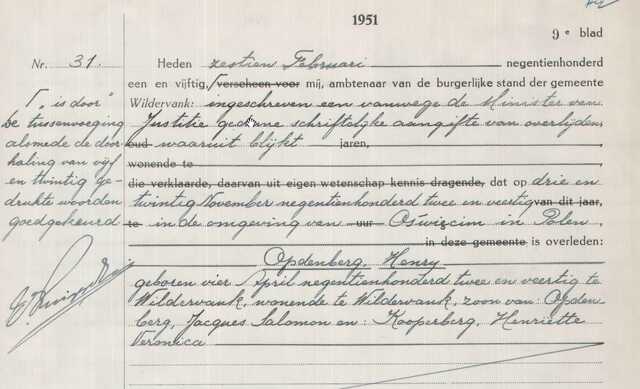 1951
9e blad
Nr. 31.
Heden zestien Februari negentienhonderd
een en vijftig, ⌈ verscheen voor mij, ambtenaar van de burgerlijke stand der gemeente
Wildervank: ingeschreven een vanwege de Minister van
Justitie gedane schriftelijke aangifte van overlijden
oud waaruit blijkt jaren,
wonende te
die verklaarde, daarvan uit eigen wetenschap kennis dragende, dat op drie en
twintig November negentienhonderd twee en veertig van dit jaar,
te in de omgeving van uur Oświscim in Polen
in deze gemeente is overleden:
Opdenberg, Henry
geboren vier April negentienhonderd twee en veertig te
Wildervank, wonende te Wildervank, zoon van: Opden-
berg, Jacques Salomon en: Kooperberg, Henriëtte
Veronica
⌈ „is door"
De tussenvoeging
alsmede de door-
haling van vijf
en twintig ge-
drukte woorden
goedgekeurd